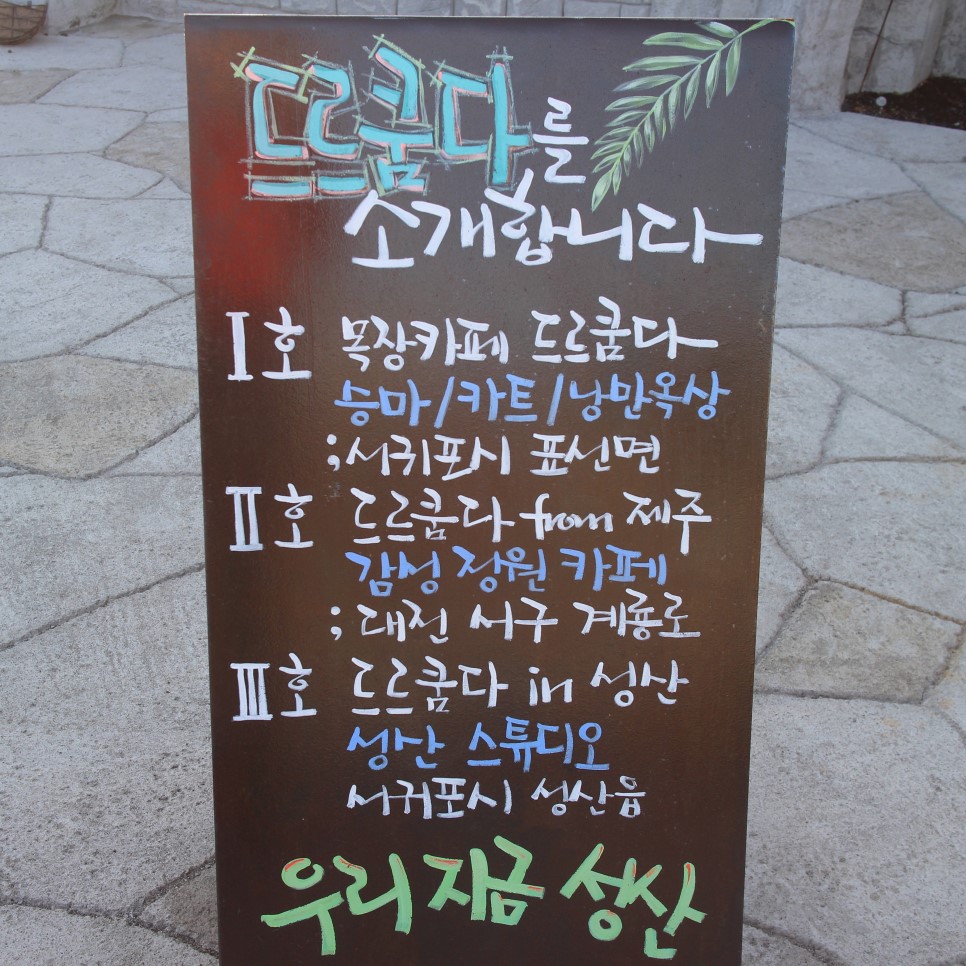 드르쿰다를
소개합니다
Ⅰ호 목장카페 드르쿰다
승마/카트/낭만옥상
;서귀포시 표선면
Ⅱ호 드르쿰다 from 제주
감성 정원 카페
;대전 서구 계룡로
Ⅲ호 드르쿰다 in 성산
성산 스튜디오
서귀포시 성산읍
우리 지금 성산